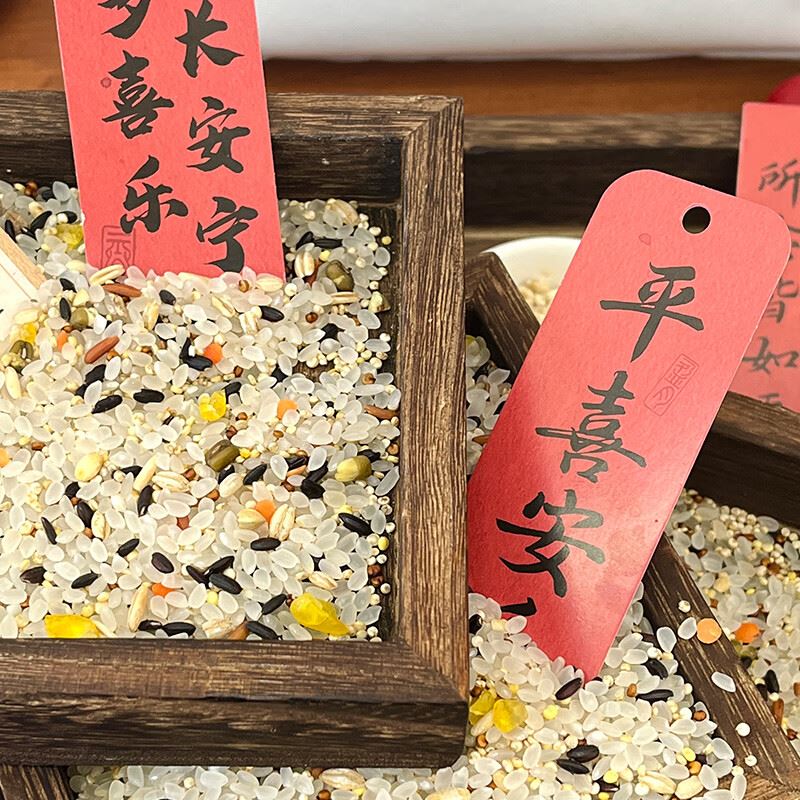 长安宁
多喜乐
平喜安
所念皆如